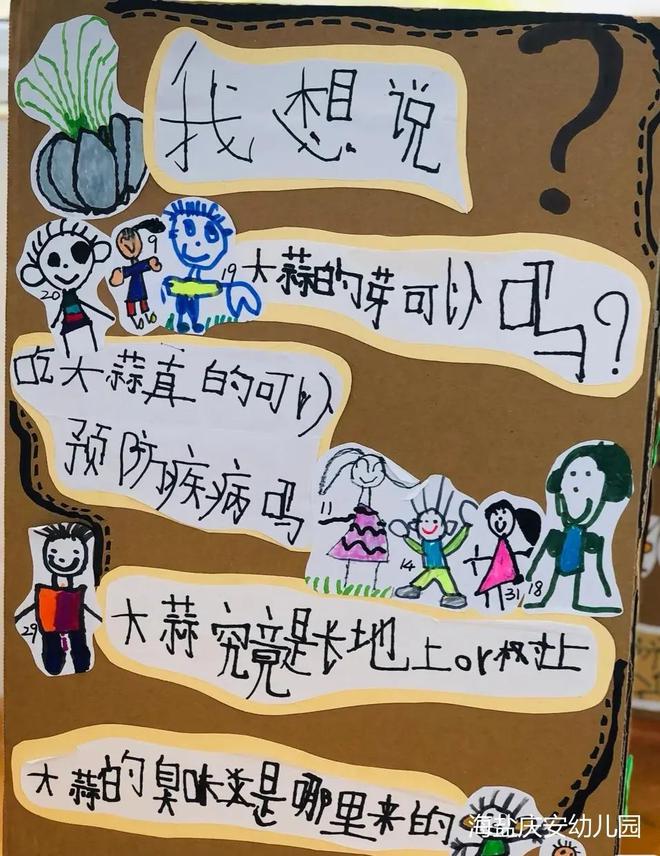 我想说
?
9
20
19
大蒜的芽可以吗?
吃大蒜真的可以
预防疾病吗
11
14
31
18
29
大蒜究竟是长地上or树上
大蒜的臭味道是哪里来的
海盐庆安幼儿园